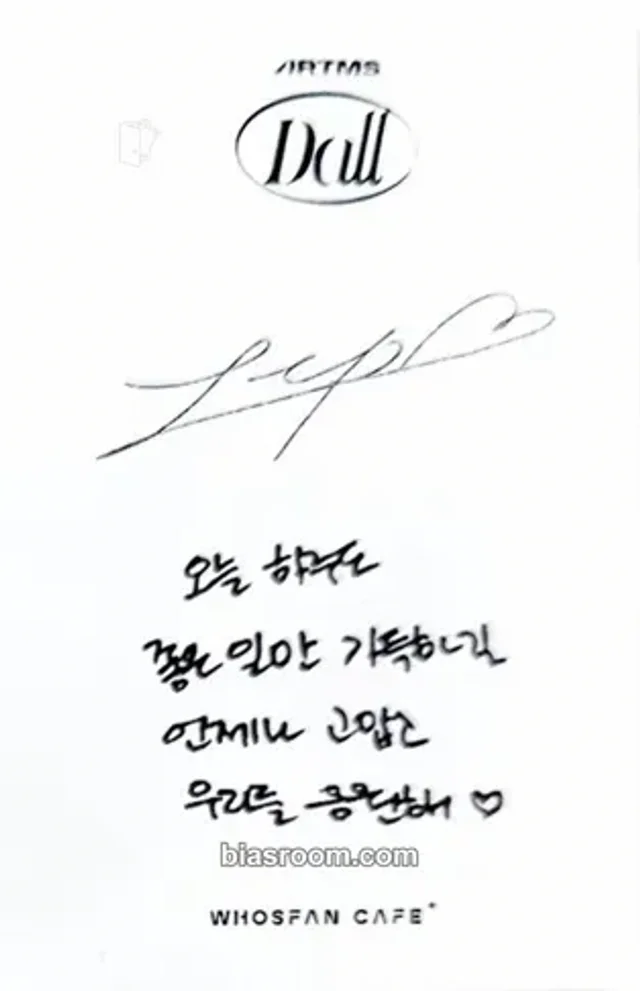 ARTMS
Dall
오늘 하루도
좋은 일만 가득하길
언제나 고맙고
♡
biasroom.com
WHOSFAN CAFE+